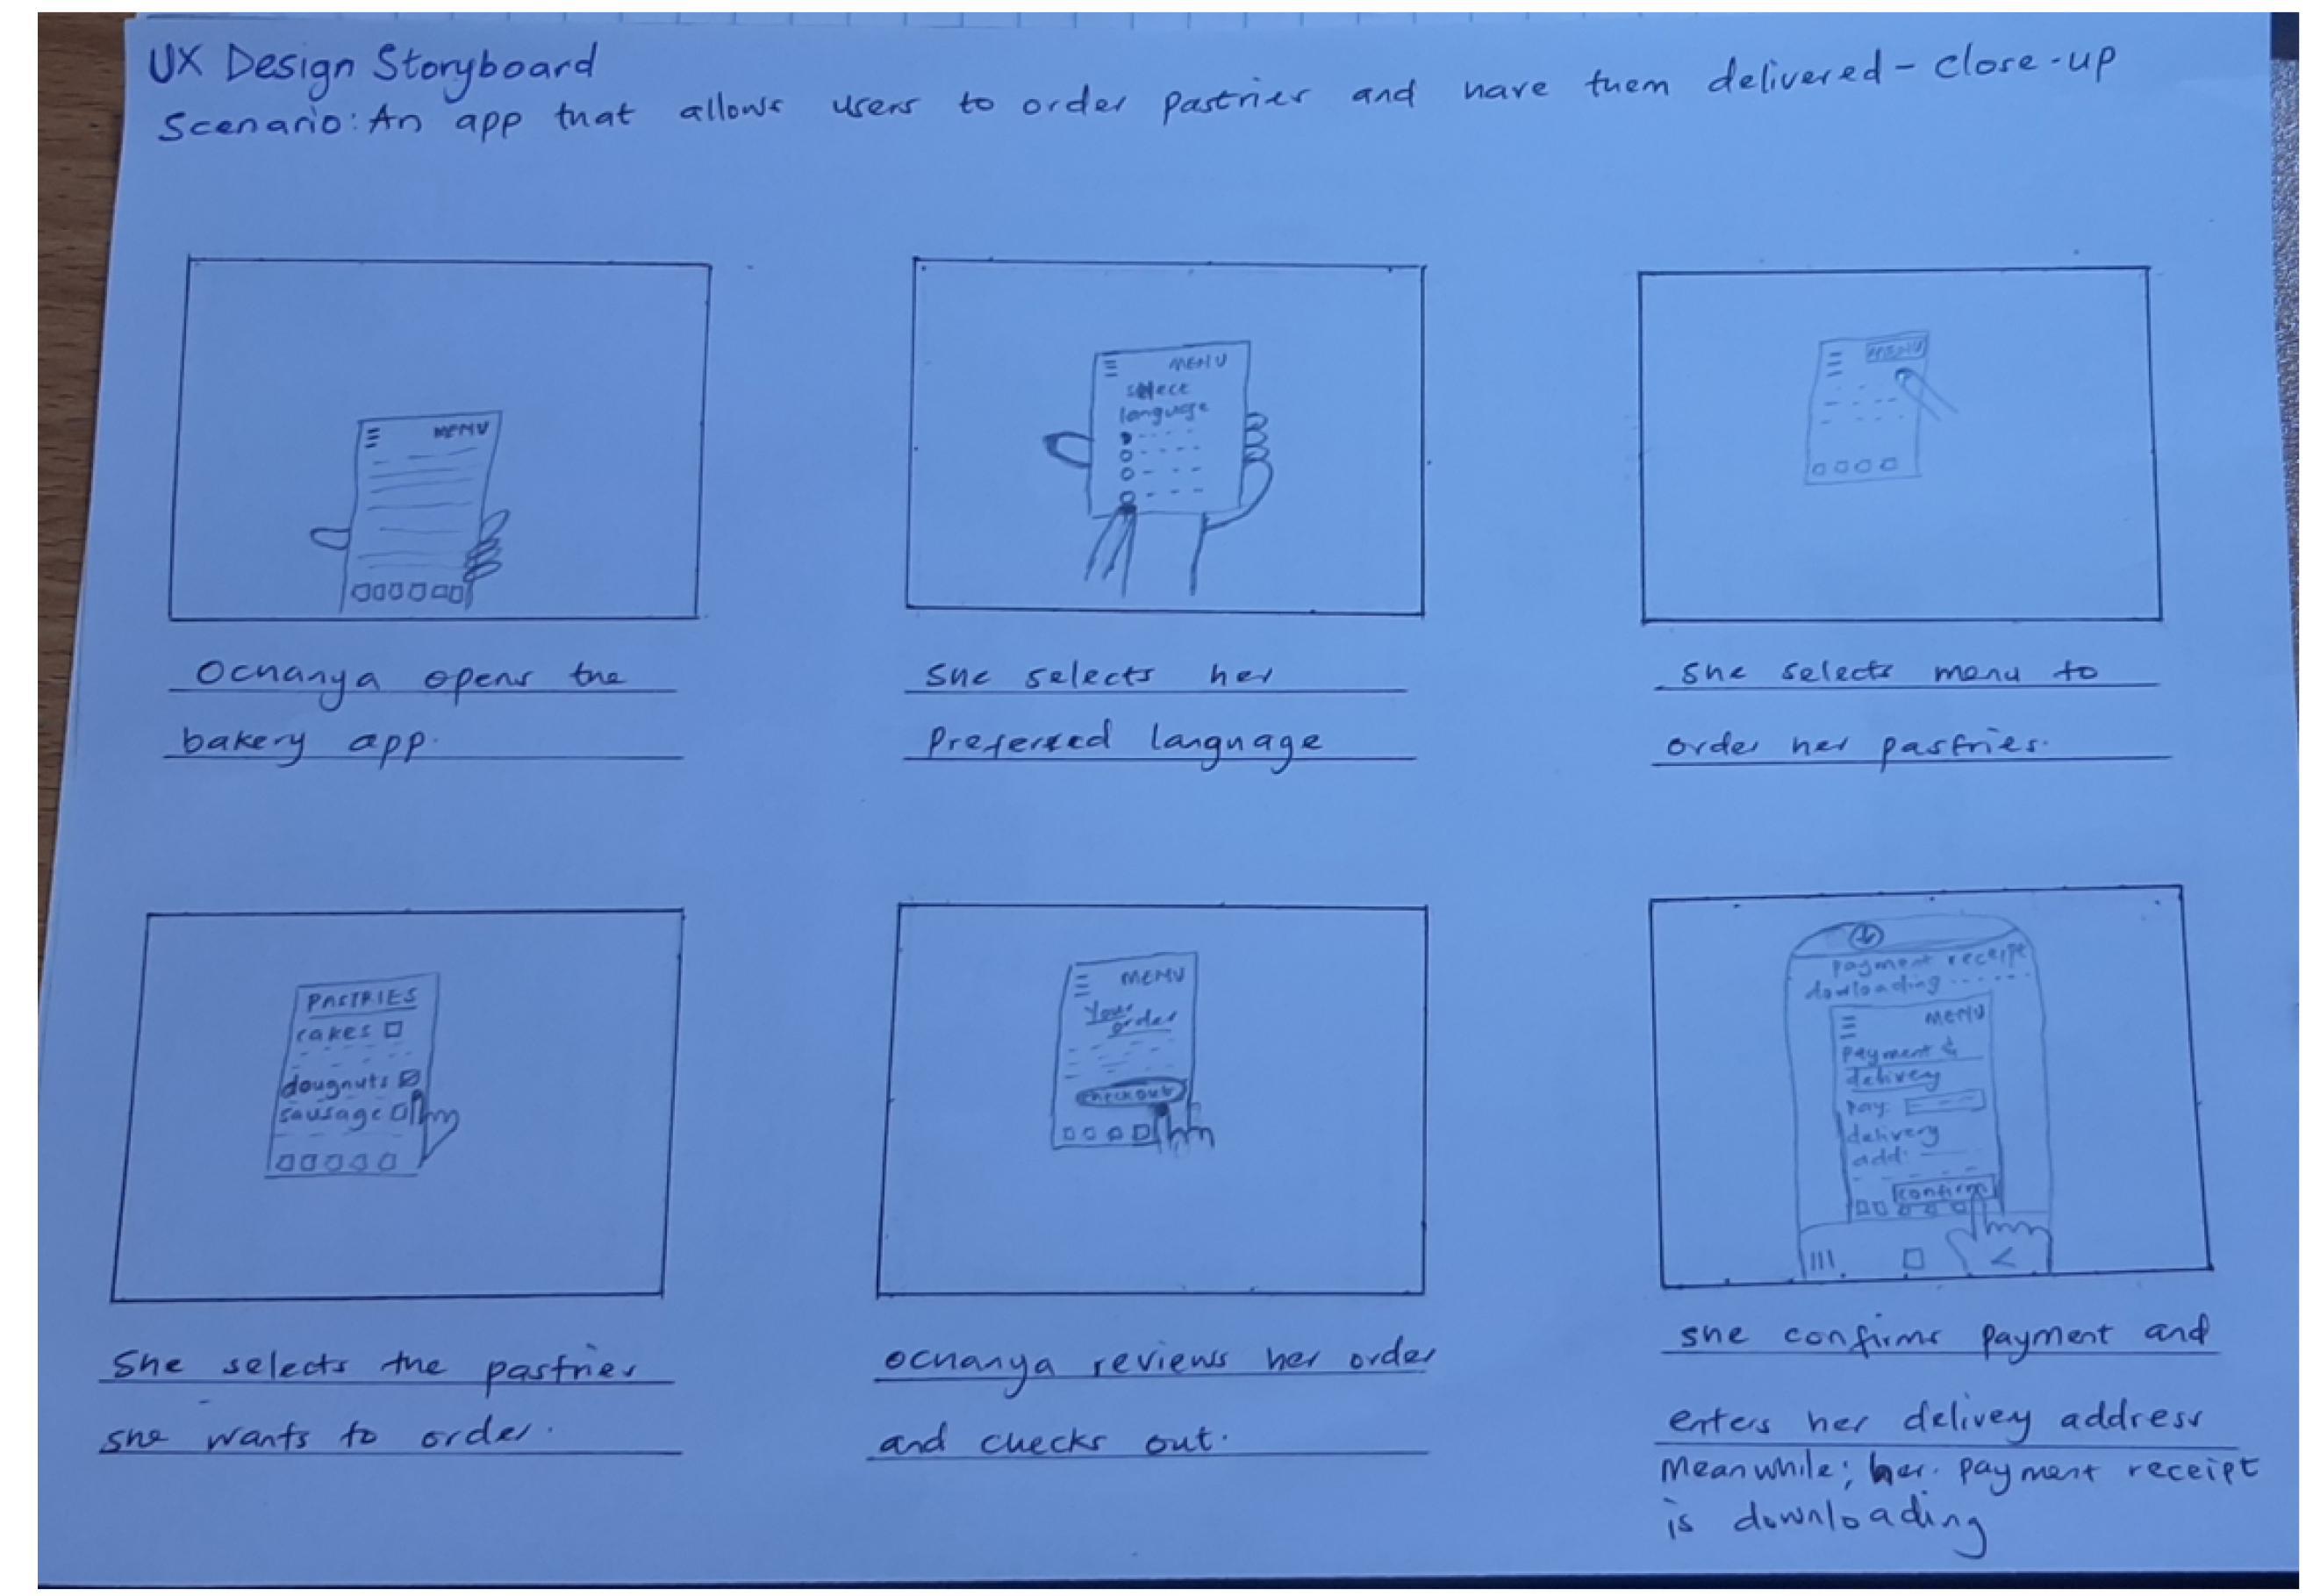 UX Design Storyboard
Scenario: An app that allows users to order pastries and have them delivered - close-up
MENU
Ochanya opens the
bakery app.
MENU
select
language
She selects her
preferred language
MENU
She selects menu to
order her pastries.
PASTRIES
cakes
doughnuts
sausage
She selects the pastries
she wants to order.
MENU
Your
order
checkout
Ochanya reviews her order
and checks out.
Payment receipt
dowloading ......
MENU
Payment &
delivery
Pay:
delivery
add:
confirm
she confirms payment and
enters her delivey address
Meanwhile; her payment receipt
is downloading